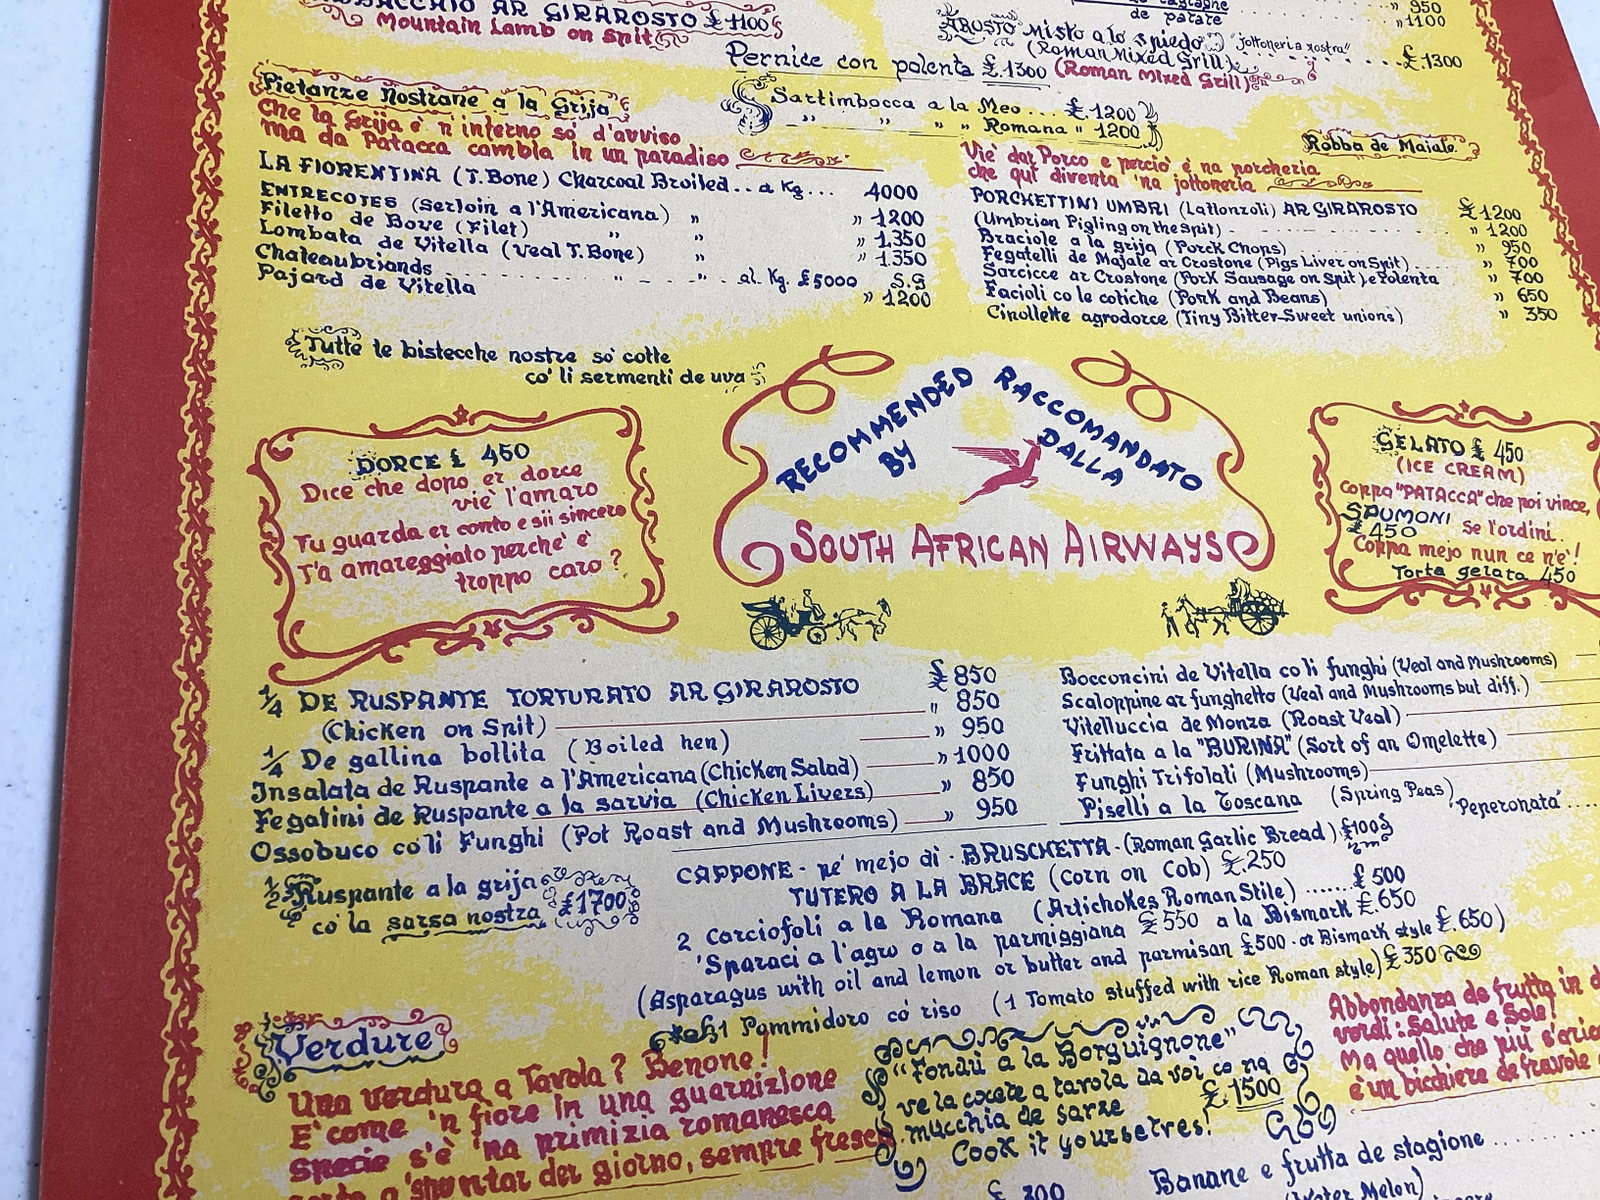 AR GIRAROSTO £ 1100
Mountain Lamb on Spit
de patate
" 950
" 1100
AROSTO misto a lo spiedo "jottoneria nostra"
(Roman Mixed Grill) £.1300
Pernice con polenta £.1300 (Roman Mixed Grill)
Sartimbocca a la Meo... £.1200
" " " " Romana " 1200
Pietanze Nostrane a la Grija
Che la Grija è 'n inferno so' d'avviso
ma da Patacca cambia in un paradiso
LA FIORENTINA (T.Bone) Charcoal Broiled.. a Kg... 4000
ENTRECOTES (Serloin a l'Americana) " " 1200
Filetto de Bove (Filet) " " 1.350
Lombata de Vitella (Veal T.Bone) " " 1.350
Chateaubriands " " al. Kg. £5000 S.G
Pajard de Vitella " 1200
Robba de Maiale
Viè dar Porco e perciò è na porcheria
che quì diventa 'na jottoneria
PORCHETTINI UMBRI (Lattonzoli) AR GIRAROSTO £ 1200
(Umbrian Pigling on the spit) " 1200
Braciole a la grija (Porck Chops) " 950
Fegatelli de Majale ar Crostone (Pigs Liver on Spit) " 700
Sarcicce ar Crostone (Pork Sausage on Spit) e Polenta " 700
Facioli co le cotiche (Pork and Beans) " 650
Cipollette agrodorce (Tiny Bitter-Sweet unions) " 350
Tutte le bistecche nostre so' cotte
co' li sermenti de uva
DORCE £ 450
Dice che dopo er dorce
viè l'amaro
Tu guarda er conto e sii sincero
T'a amareggiato perchè è
troppo caro?
RECOMMENDED BY
RACCOMANDATO DALLA
SOUTH AFRICAN AIRWAYS
GELATO £ 450
(ICE CREAM)
Coppa "PATACCA" che poi vince,
SPUMONI se l'ordini.
£ 450
Coppa mejo nun ce n'è!
Torta gelata 450
1/4 DE RUSPANTE TORTURATO AR GIRAROSTO £ 850
(Chicken on Spit) " 850
1/4 De gallina bollita (Boiled hen) " 950
Insalata de Ruspante a l'Americana (Chicken Salad) " 1000
Fegatini de Ruspante a la sarvia (Chicken Livers) " 850
Ossobuco co' li Funghi (Pot Roast and Mushrooms) " 950
1/2 Ruspante a la grija
co' la sarsa nostra £1700
Bocconcini de Vitella co li funghi (Veal and Mushrooms)
Scaloppine ar funghetto (Veal and Mushrooms but diff.)
Vitelluccia de Monza (Roast Veal)
Frittata a la "BURINA" (Sort of an Omelette)
Funghi Trifolati (Mushrooms)
Piselli a la Toscana (Spring Peas) "Peperonata"....
CAPPONE - pe' mejo dì - BRUSCHETTA - (Roman Garlic Bread) £100
TUTERO A LA BRACE (Corn on Cob) £.250
2 Carciofoli a la Romana (Artichokes Roman Stile) ...... £ 500
'Sparaci a l'agro o a la parmiggiana £ 550 a la Bismark £.650
(Asparagus with oil and lemon or butter and parmisan £500 - or Bismark style £.650)
1 Pommidoro co' riso (1 Tomato stuffed with rice Roman style) £350
Verdure
Una verdura a Tavola? Benone!
E' come 'n fiore in una guarnizione
Specie s'è 'na primizia romanesca
a 'spuntar der giorno, sempre fresca
"Fondù a la Borguignone"
ve la cocete a tavola da voi co na
mucchia de sarze £.1500
Cook it yourselves!
Abbondanza de frutta in
vordì: Salute e Sole!
Ma quello che più
è un bicchiere de fravole
£ 300
Banane e frutta de stagione
(Water Melon)